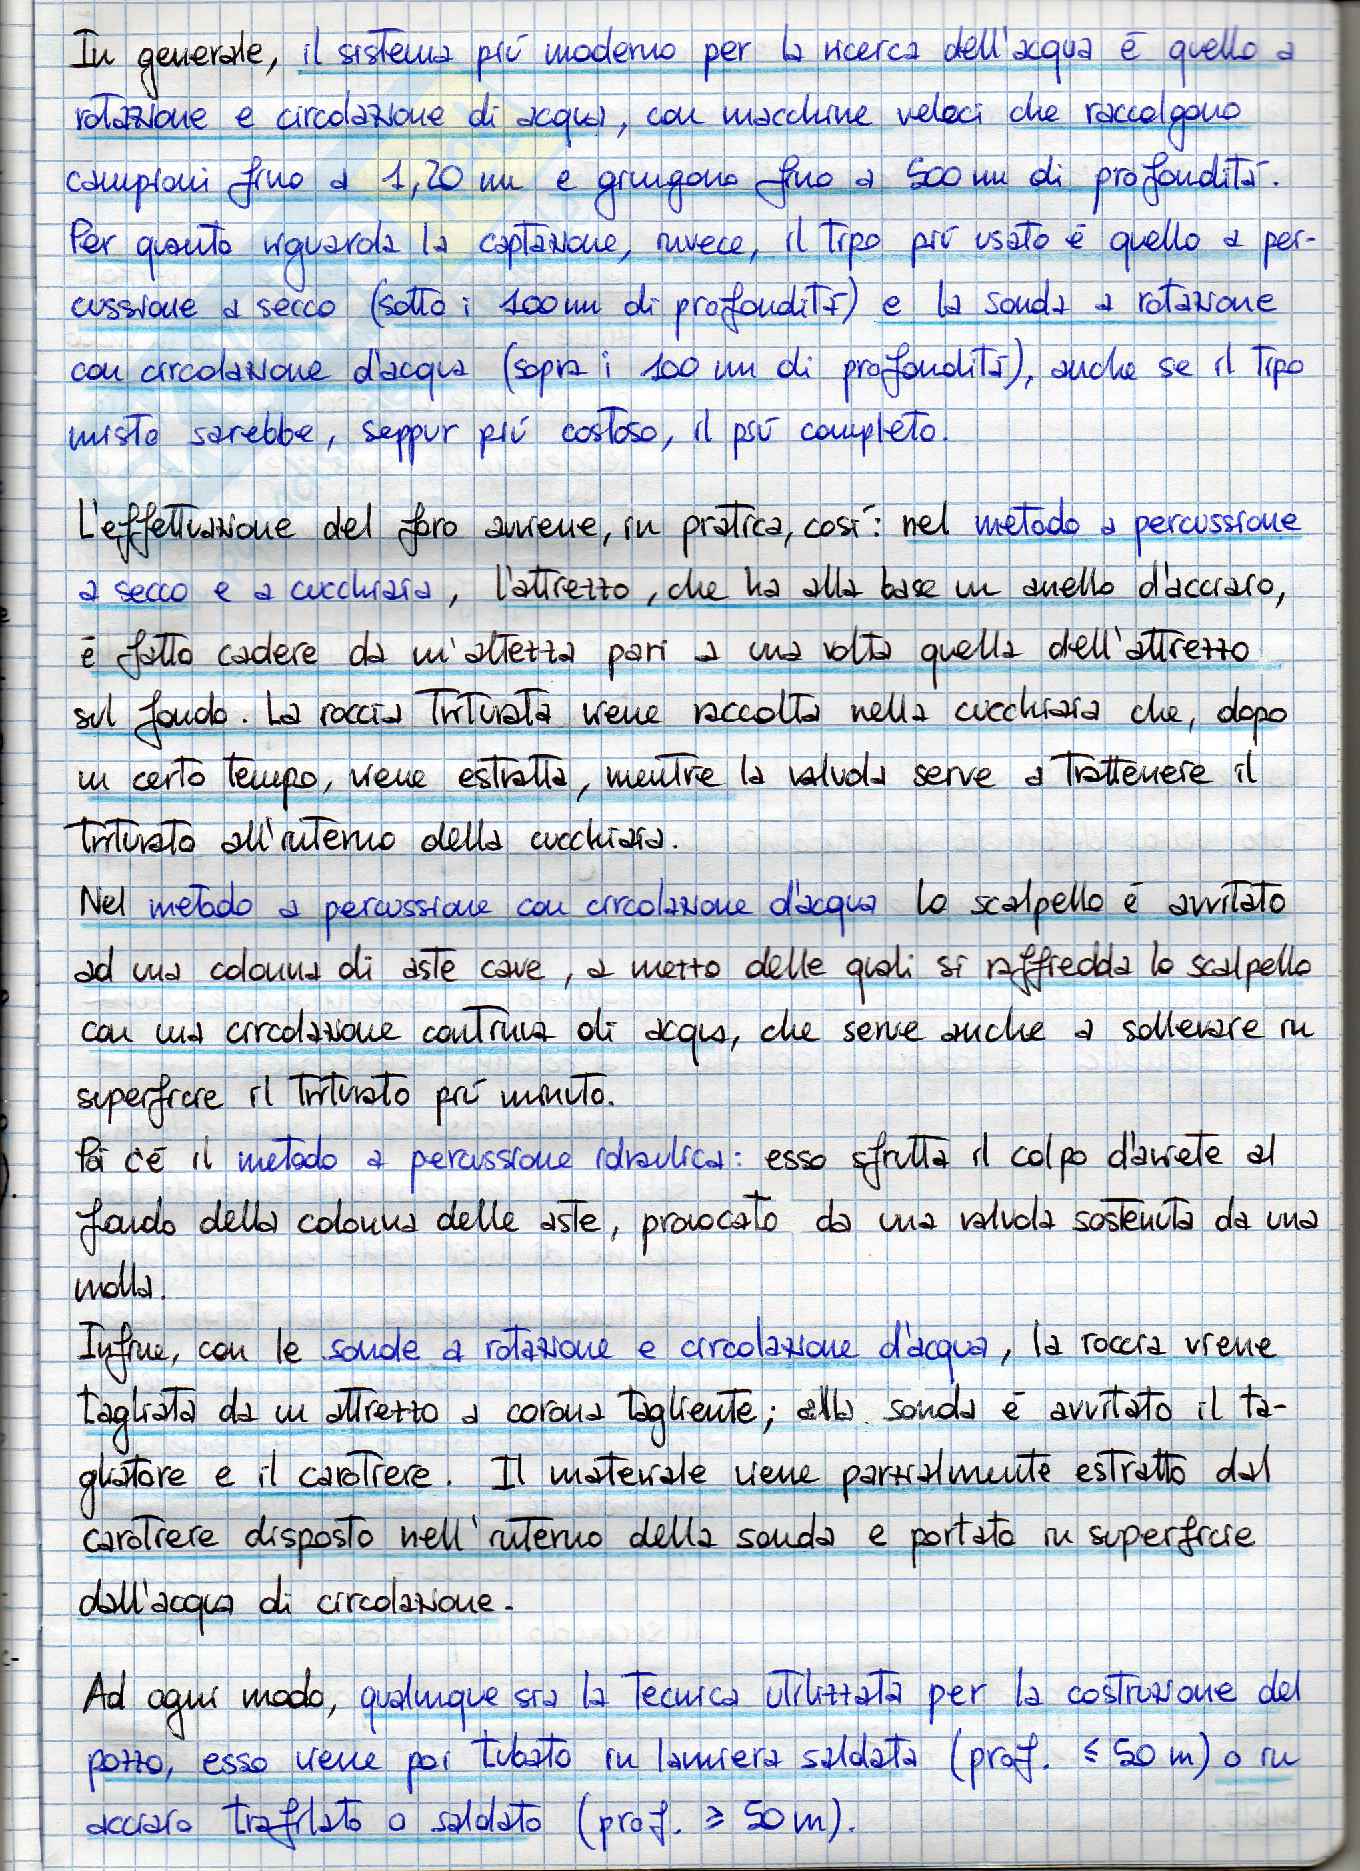 In generale, il sistema più moderno per la ricerca dell'acqua è quello a
rotazione e circolazione di acqua, con macchine veloci che raccolgono
campioni fino a 1,20 m e giungono fino a 500 m di profondità.
Per quanto riguarda la captazione, invece, il tipo più usato è quello a per-
cussione a secco (sotto i 100 m di profondità) e la sonda a rotazione
con circolazione d'acqua (sopra i 100 m di profondità), anche se il tipo
misto sarebbe, seppur più costoso, il più completo.
L'effettuazione del foro avviene, in pratica, così: nel metodo a percussione
a secco e a cucchiaia, l'attrezzo, che ha alla base un anello d'acciaio,
è fatto cadere da un'altezza pari a una volta quella dell'attrezzo
sul fondo. La roccia triturata viene raccolta nella cucchiaia che, dopo
un certo tempo, viene estratta, mentre la valvola serve a trattenere il
triturato all'interno della cucchiaia.
Nel metodo a percussione con circolazione d'acqua lo scalpello è avvitato
ad una colonna di aste cave, a mezzo delle quali si raffredda lo scalpello
con una circolazione continua di acqua, che serve anche a sollevare in
superficie il triturato più minuto.
Poi c'è il metodo a percussione idraulica: esso sfrutta il colpo d'ariete al
fondo della colonna delle aste, provocato da una valvola sostenuta da una
molla.
Infine, con le sonde a rotazione e circolazione d'acqua, la roccia viene
tagliata da un attrezzo a corona tagliente; alla sonda è avvitato il ta-
gliatore e il carotiere. Il materiale viene parzialmente estratto dal
carotiere disposto nell'interno della sonda e portato in superficie
dall'acqua di circolazione.
Ad ogni modo, qualunque sia la tecnica utilizzata per la costruzione del
pozzo, esso viene poi tubato in lamiera saldata (prof. ≤ 50 m) o in
acciaio trafilato o saldato (prof. ≥ 50 m).